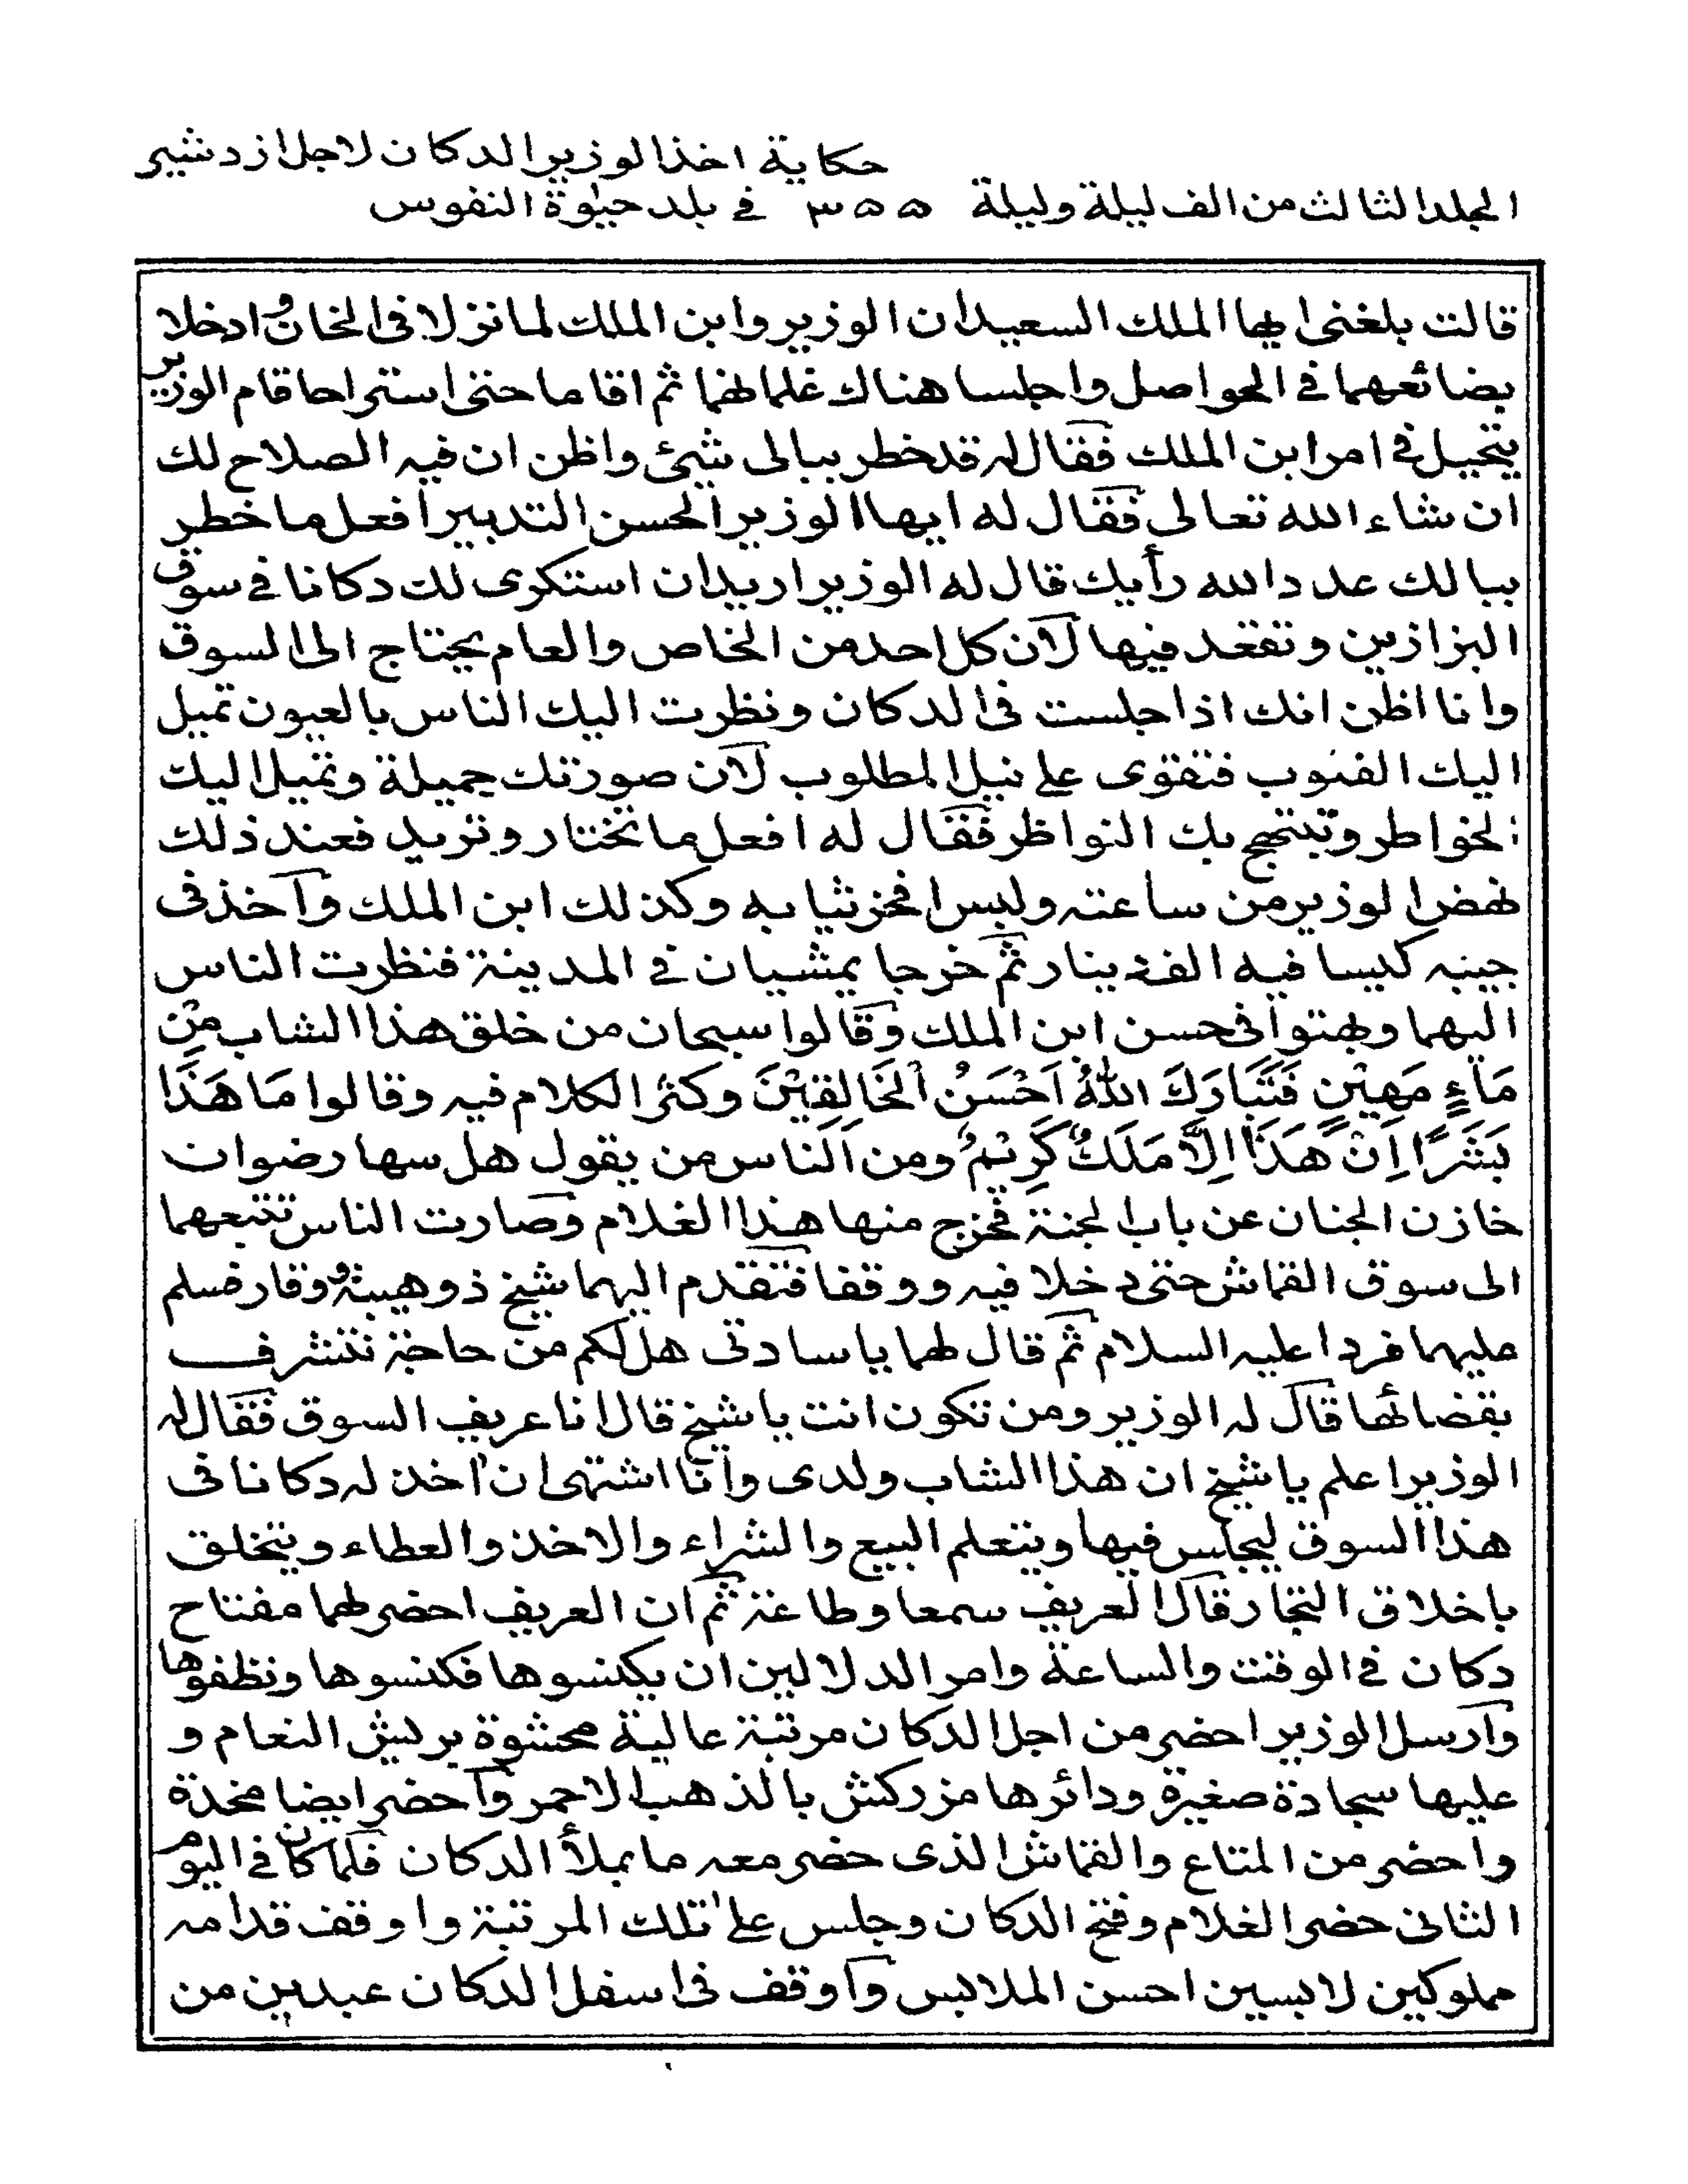 حكاية اخذ الوزير الدكان لاجل ازدشير
المجلد الثالث من الف ليلة وليلة ٣٥٥ في بلد حيٰوة النفوس
قالت بلغنى ايها الملك السعيد ان الوزير وابن الملك لما نزلا فى الخان و ادخلا
بضائعهما في الحواصل واجلسا هناك غلمانهما ثم اقاما حتى استراحا قام الوزير
يتحيل في امر ابن الملك فقال له قد خطر ببالى شئ واظن ان فيه الصلاح لك
ان شاء الله تعالى فقال له ايها الوزير الحسن التدبير افعل ما خطر
ببالك سدد الله رأيك قال له الوزير اريد ان استكرى لك دكانا في سوق
البزازين وتقعد فيها لان كل احد من الخاص والعام يحتاج الى السوق
وانا اظن انك اذا جلست فى الدكان ونظرت اليك الناس بالعيون تميل
اليك القلوب فتقوى على نيل المطلوب لان صورتك جميلة وتميل اليك
الخواطر وتبتهج بك النواظر فقال له افعل ما تختار وتريد فعند ذلك
نهض الوزير من ساعته ولبس افخر ثيابه وكذلك ابن الملك وآخذ فى
جيبه كيسا فيه الف دينار ثم خرجا يمشيان في المدينة فنظرت الناس
اليهما وبهتوا فى حسن ابن الملك وقالوا سبحان من خلق هذا الشاب مِنْ
مَاءٍ مَهِيْنٍ فَتَبَارَكَ اللهُ اَحْسَنُ الْخَالِقِيْنَ وكثر الكلام فيه وقالوا مَا هَذَا
بَشَرًا اِنْ هَذَا اِلَّا مَلَكٌ كَرِيْمٌ ومن الناس من يقول هل سها رضوان
خازن الجنان عن باب الجنة فخرج منها هذا الغلام وصارت الناس تتبعهما
الى سوق القماش حتى دخلا فيه ووقفا فتقدم اليهما شيخ ذو هيبة و وقار فسلم
عليهما فردا عليه السلام ثم قال لهما يا سادتى هل لكم من حاجة نتشرف
بقضائها قال له الوزير ومن تكون انت يا شيخ قال انا عريف السوق فقال له
الوزير اعلم يا شيخ ان هذا الشاب ولدى وانا اشتهى ان اخذ له دكانا فى
هذا السوق ليجلس فيها ويتعلم البيع والشراء والاخذ والعطاء ويتخلق
باخلاق التجار قال العريف سمعا وطاعة ثم ان العريف احضر لهما مفتاح
دكان في الوقت والساعة وامر الدلالين ان يكنسوها فكنسوها ونظفوها
وآرسل الوزير احضر من اجل الدكان مرتبة عالية محشوة بريش النعام و
عليها سجادة صغيرة ودائرها مزركش بالذهب الاحمر وآحضر ايضا مخدة
واحضر من المتاع والقماش الذى حضر معه ما يملأ الدكان فلما كان في اليوم
الثانى حضر الغلام وفتح الدكان وجلس على تلك المرتبة واوقف قدامه
مملوكين لابسين احسن الملابس وآوقف فى اسفل الدكان عبدين من